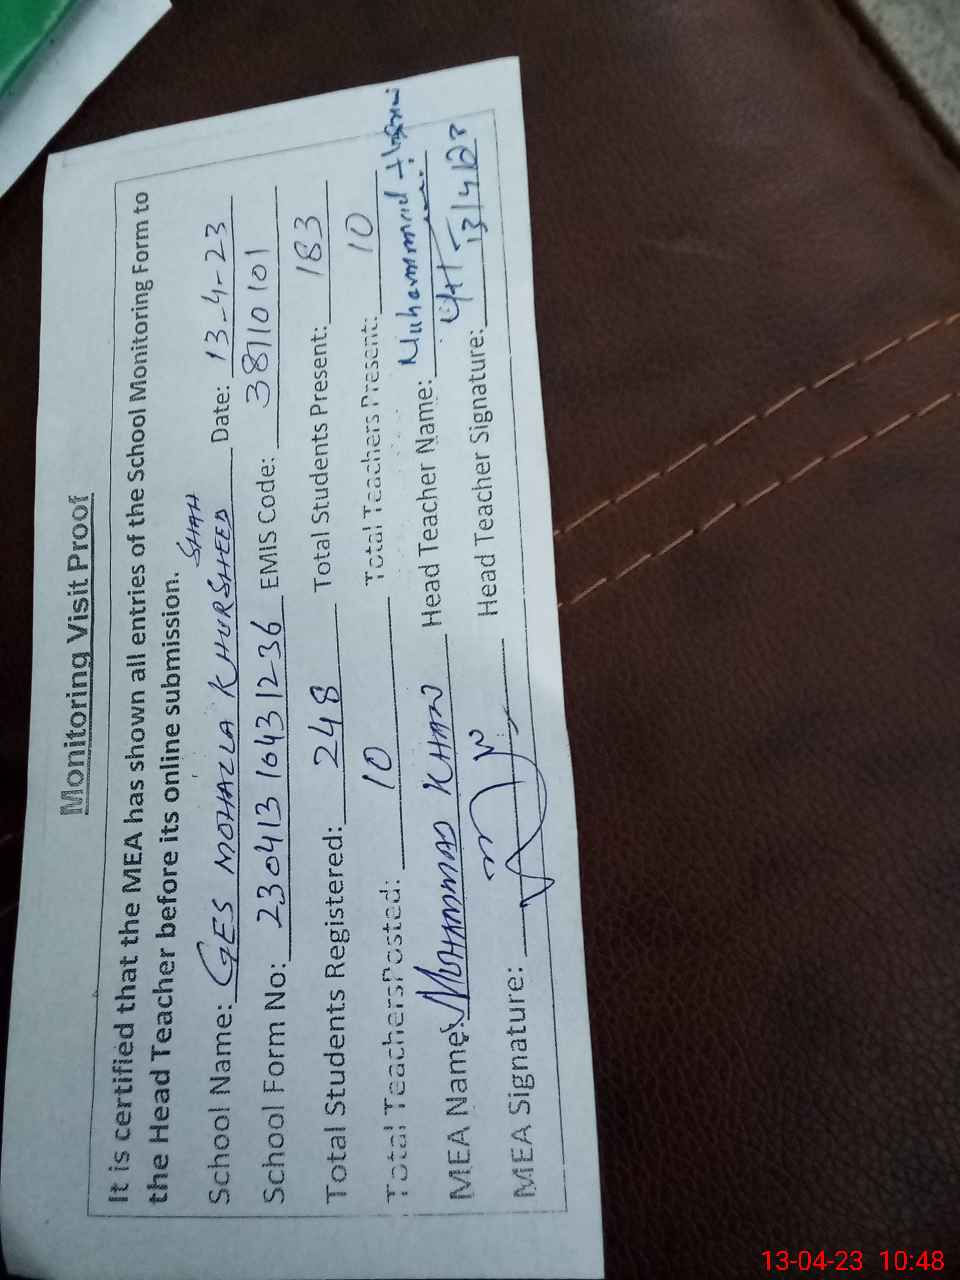 Monitoring Visit Proof
It is certified that the MEA has shown all entries of the School Monitoring Form to
the Head Teacher before its online submission.
School Name: GES MOHALLA KHURSHEED SHAH Date: 13-4-23
School Form No: 230413 1643 1236 EMIS Code: 38110101
Total Students Registered: 248 Total Students Present: 183
Total Teachers Posted: 10 Total Teachers Present: 10
MEA Name: MUHAMMAD KHAN Head Teacher Name: Muhammad
MEA Signature: Head Teacher Signature: 13/4/23
13-04-23 10:48